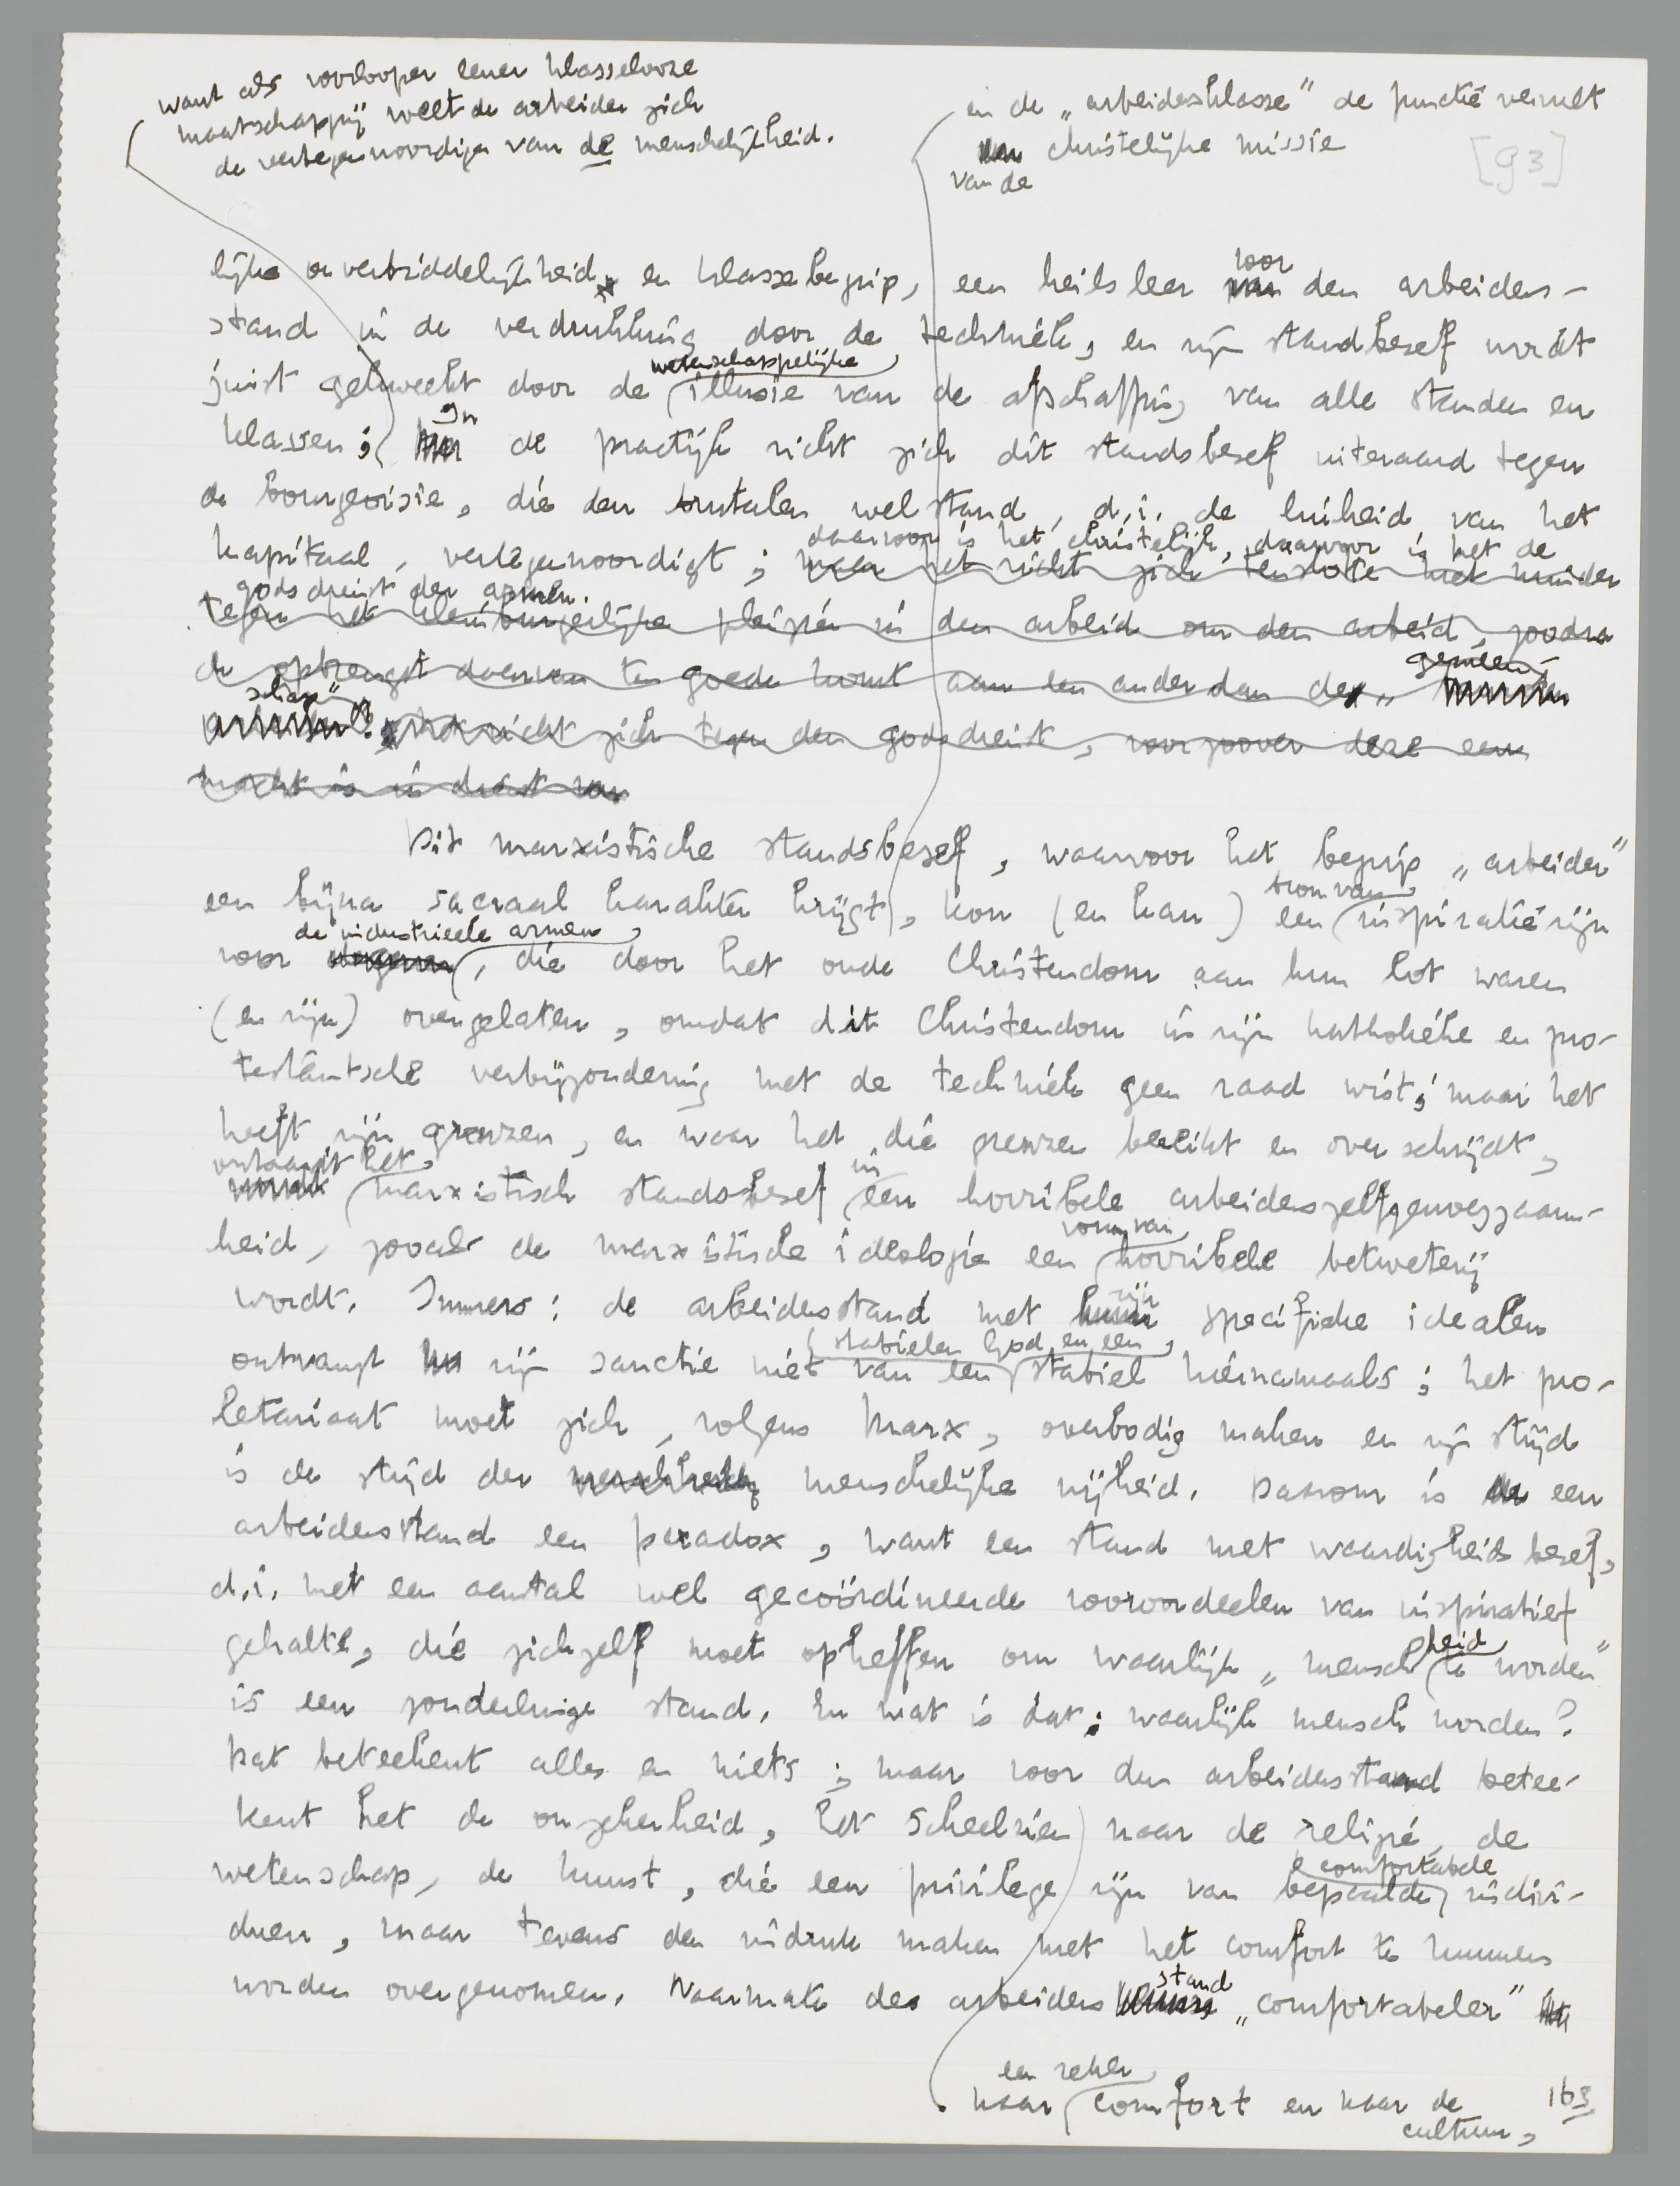 want als voorlooper eener klasselooze
maatschappij weet de arbeider zich
de vertegenwoordiger van de menschelijkheid.
en de „arbeidersklasse" de functie vervult
van de christelijke missie
[93]
lijke onverbiddelijkheid en klassebegrip, een heilsleer voor den arbeiders-
stand in de verdrukking door de techniek, en zijn standsbesef wordt
juist gekweekt door de wetenschappelijke illusie van de afschaffing van alle standen en
klassen; In de practijk richt zich dit standsbesef uiteraard tegen
de bourgeoisie, die den brutalen welstand, d.i. de luiheid van het
kapitaal, vertegenwoordigt; daarvoor is het christelijk, daarvoor is het de
godsdienst der armen.
maar het richt zich tenslotte niet minder
tegen het kleinburgerlijke plezier in den arbeid om den arbeid, zoodra
de opbrengst daarvan ten goede komt aan een ander dan de „gemeen-
schap". Het richt zich tegen den godsdienst, voorzoover deze een
macht is in dienst van
Dit marxistische standsbesef, waarvoor het begrip „arbeider"
een bijna sacraal karakter krijgt, kon (en kan) een bron van inspiratie zijn
voor de industrieele armen, die door het oude Christendom aan hun lot waren
(en zijn) overgelaten, omdat dit Christendom in zijn katholieke en pro-
testantsche verbijzondering met de techniek geen raad wist; maar het
heeft zijn grenzen, en waar het die grenzen bereikt en overschrijdt,
ontaardt het marxistisch standsbesef in een horribele arbeiderszelfgenoegzaam-
heid, zooals de marxistische ideologie een vorm van horribele betweterij
wordt. Immers: de arbeidersstand met zijn specifieke idealen
ontvangt zijn sanctie niet van een stabielen God en een stabiel hiernamaals; het pro-
letariaat moet zich, volgens Marx, overbodig maken en zijn strijd
is de strijd der menschelijke vrijheid. Daarom is een
arbeidersstand een paradox, want een stand met waardigheidsbesef,
d.i. met een aantal wel gecoördineerde vooroordeelen van inspiratief
gehalte, die zichzelf moet opheffen om waarlijk „menschheid te worden"
is een zonderlinge stand. En wat is dat: waarlijk mensch worden?
Dat beteekent alles en niets; maar voor den arbeidersstand betee-
kent het de onzekerheid, het scheelzien naar de religie, de
wetenschap, de kunst, die een privilege zijn van bepaalde comfortabele indivi-
duen, maar tevens den indruk maken met het comfort te kunnen
worden overgenomen. Naarmate de arbeidersstand „comfortabeler"
naar een zeker comfort en naar de
cultuur,
163